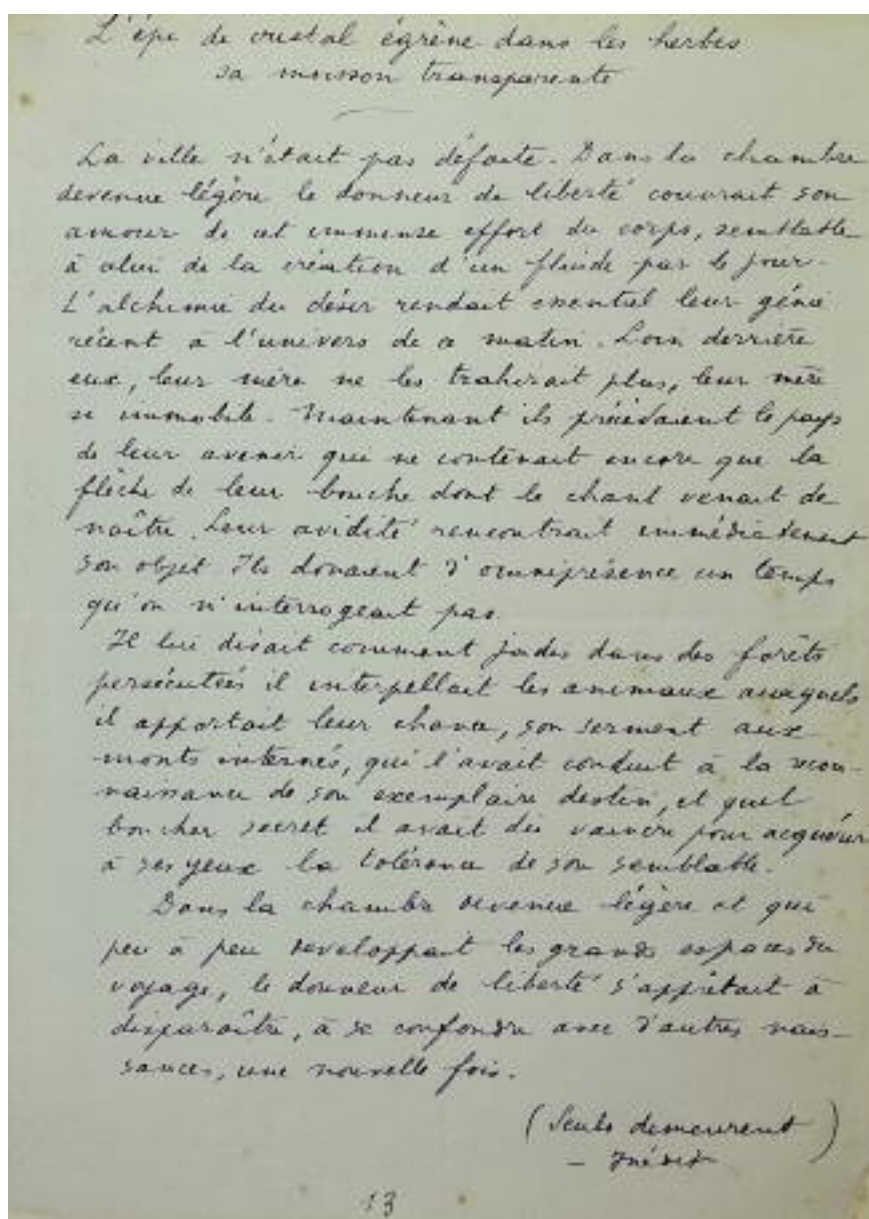 L'épi de cristal égrène dans les herbes
sa moisson transparente
La ville n'était pas défaite. Dans la chambre
devenue légère le donneur de liberté couvrait son
amour de cet immense effort du corps, semblable
à celui de la création d'un fluide par le jour.
L'alchimie du désir rendait essentiel leur génie
récent à l'univers de ce matin. Loin derrière
eux, leur mère ne les trahirait plus, leur mère
si immobile. Maintenant ils précédaient le pays
de leur avenir qui ne contenait encore que la
flèche de leur bouche dont le chant venait de
naître. Leur avidité rencontrait immédiatement
son objet Ils douaient d'omniprésence un temps
qu'on n'interrogeait pas.
Il lui disait comment jadis dans des forêts
persécutées il interpellait les animaux auxquels
il apportait leur chance, son serment aux
monts internés, qui l'avait conduit à la recon-
naissance de son exemplaire destin, et quel
boucher secret il avait dû vaincre pour acquérir
à ses yeux la tolérance de son semblable.
Dans la chambre devenue légère et qui
peu à peu développait les grands espaces du
voyage, le donneur de liberté s'apprêtait à
disparaître, à se confondre avec d'autres nais-
sances, une nouvelle fois.
(Seuls demeurent)
– Inédit
13